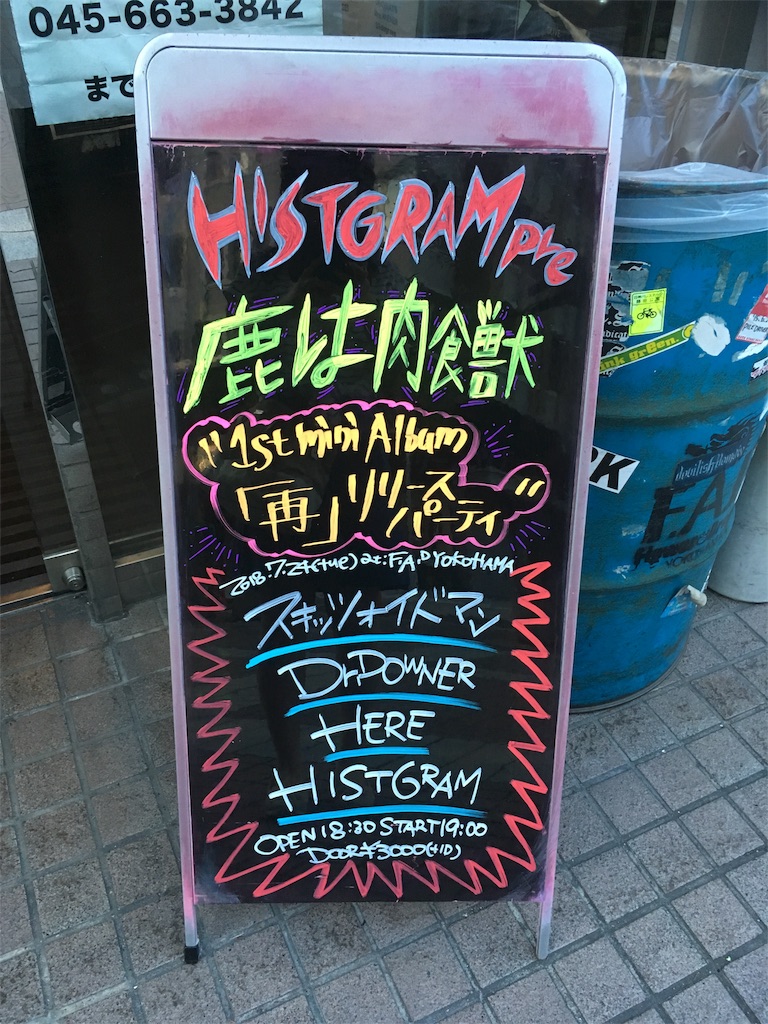 045-663-3842
まで
HISTGRAM pre
鹿は肉食獣
"1st mini Album
「再」リリース
パーティ"
2018.7.24(tue) at:F.A.D YOKOHAMA
スキッツォイドマン
Dr.DOWNER
HERE
HISTGRAM
OPEN18:30 START19:00
DOOR¥3000(+1D)
ink gr8en.
RK
F.A.D